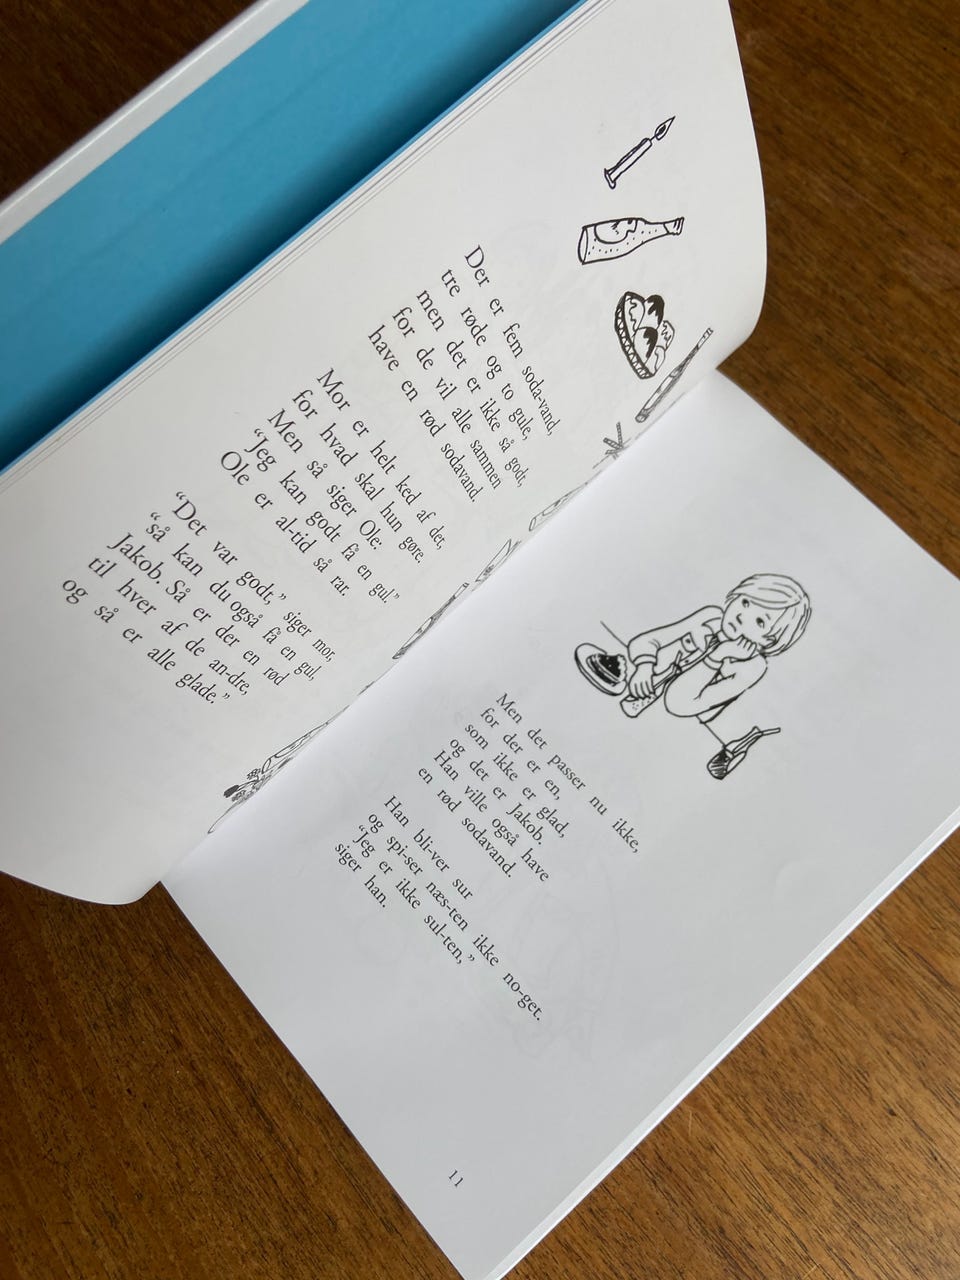 Der er fem soda-vand,
tre røde og to gule,
men det er ikke så godt,
for de vil alle sammen
have en rød sodavand.
Mor er helt ked af det,
for hvad skal hun gøre.
Men så siger Ole:
“Jeg kan godt få en gul.”
Ole er al-tid så rar.
“Det var godt,” siger mor,
“så kan du også få en gul,
Jakob. Så er der en rød
til hver af de an-dre,
og så er alle glade.”
Men det passer nu ikke,
for der er en,
som ikke er glad,
og det er Jakob.
Han ville også have
en rød sodavand.
Han bli-ver sur
og spi-ser næs-ten ikke no-get.
“Jeg er ikke sul-ten,”
siger han.
11